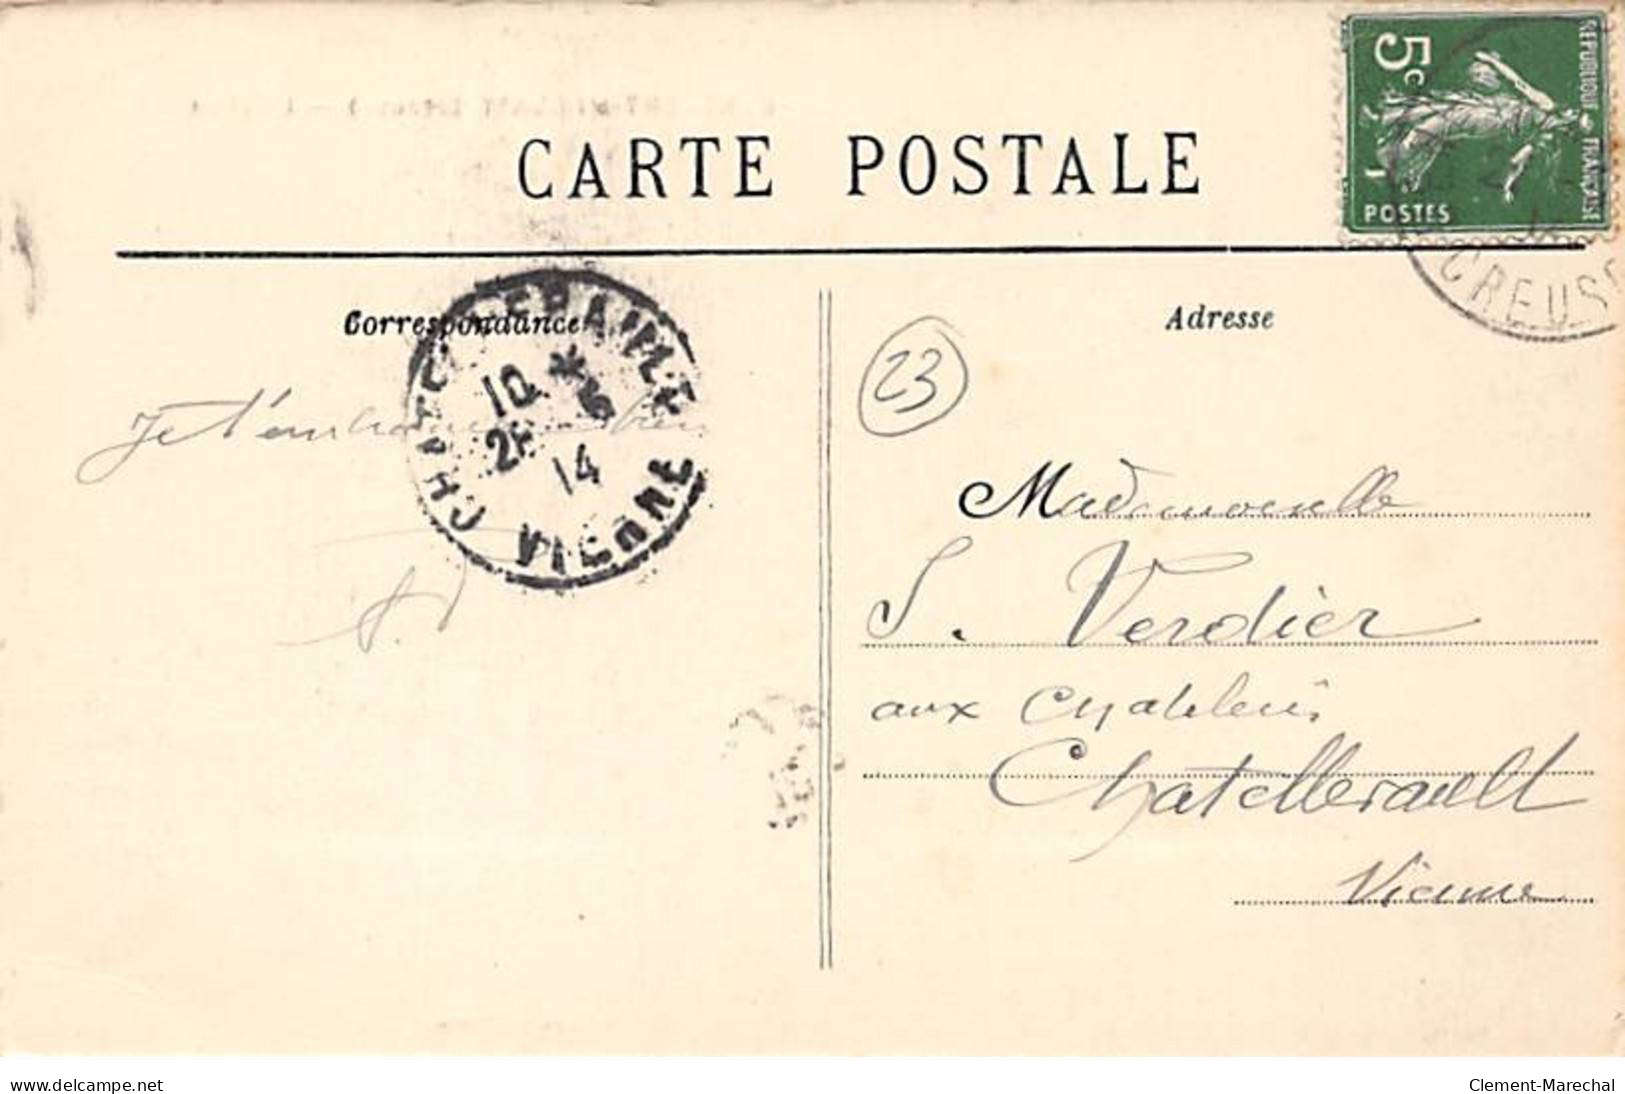 CARTE POSTALE
5c
REPUBLIQUE FRANÇAISE
POSTES
CREUSE
Correspondance
Adresse
CHATELLERAULT
10 * 5
14
VIENNE
23
Je t'embrasse bien
Mademoiselle
S. Verdier
aux
Chatellerault
Vienne
www.delcampe.net
Clement-Marechal